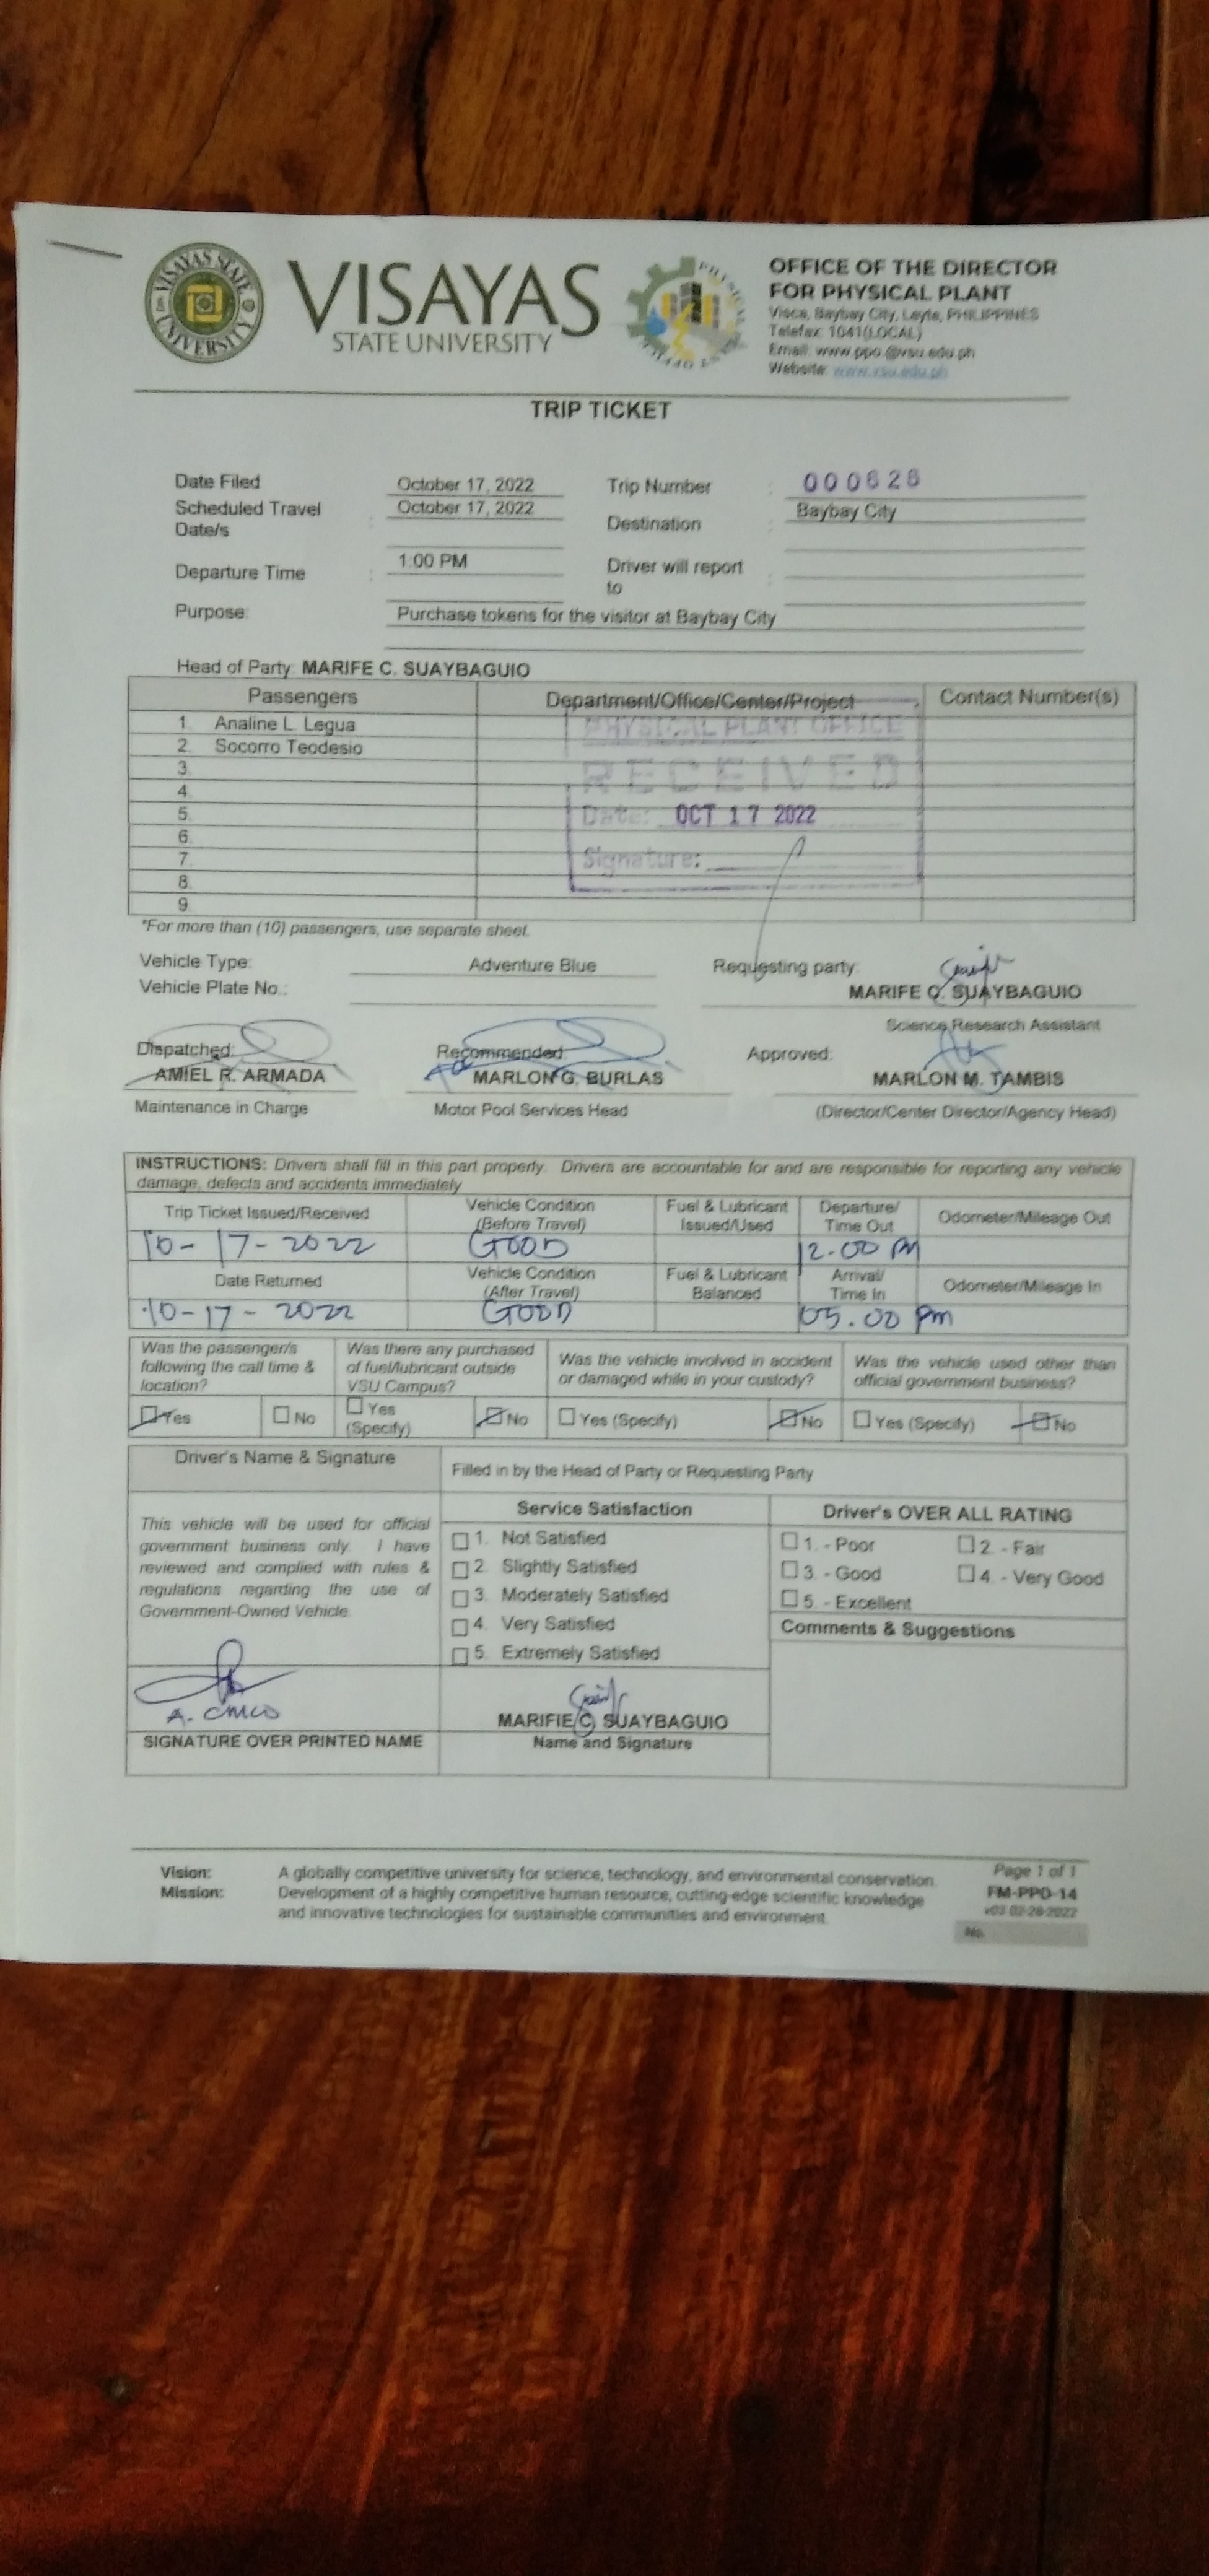 VISAYAS STATE UNIVERSITY
VISAYAS
STATE UNIVERSITY
OFFICE OF THE DIRECTOR
FOR PHYSICAL PLANT
Visca, Baybay City, Leyte, PHILIPPINES
Telefax: 1041(LOCAL)
Email: www.ppo.@vsu.edu.ph
Website: www.vsu.edu.ph
TRIP TICKET
Date Filed October 17, 2022 Trip Number : 000628
Scheduled Travel Date/s : October 17, 2022 Destination Baybay City
Departure Time : 1:00 PM Driver will report to :
Purpose: Purchase tokens for the visitor at Baybay City
Head of Party: MARIFE C. SUAYBAGUIO
Passengers Department/Office/Center/Project Contact Number(s)
1. Analine L. Legua
2. Socorro Teodesio
3.
4.
5.
6.
7.
8.
9.
PHYSICAL PLANT OFFICE
RECEIVED
Date: OCT 17 2022
Signature:
*For more than (10) passengers, use separate sheet.
Vehicle Type: Adventure Blue Requesting party:
Vehicle Plate No.: MARIFE C. SUAYBAGUIO
Science Research Assistant
Dispatched: Recommended: Approved:
AMIEL R. ARMADA MARLON G. BURLAS MARLON M. TAMBIS
Maintenance in Charge Motor Pool Services Head (Director/Center Director/Agency Head)
INSTRUCTIONS: Drivers shall fill in this part properly. Drivers are accountable for and are responsible for reporting any vehicle
damage, defects and accidents immediately
Trip Ticket Issued/Received Vehicle Condition (Before Travel) Fuel & Lubricant Issued/Used Departure/ Time Out Odometer/Mileage Out
10-17-2022 GOOD 12.00 PM
Date Returned Vehicle Condition (After Travel) Fuel & Lubricant Balanced Arrival/ Time In Odometer/Mileage In
10-17-2022 GOOD 05.00 pm
Was the passenger/s following the call time & location? Was there any purchased of fuel/lubricant outside VSU Campus? Was the vehicle involved in accident or damaged while in your custody? Was the vehicle used other than official government business?
Yes No Yes (Specify) No Yes (Specify) No Yes (Specify) No
Driver's Name & Signature Filled in by the Head of Party or Requesting Party
This vehicle will be used for official
government business only. I have
reviewed and complied with rules &
regulations regarding the use of
Government-Owned Vehicle.
Service Satisfaction
1. Not Satisfied
2. Slightly Satisfied
3. Moderately Satisfied
4. Very Satisfied
5. Extremely Satisfied
Driver's OVER ALL RATING
1. - Poor 2. - Fair
3. - Good 4. - Very Good
5. - Excellent
Comments & Suggestions
MARIFIE C. SUAYBAGUIO
SIGNATURE OVER PRINTED NAME Name and Signature
Vision: A globally competitive university for science, technology, and environmental conservation.
Mission: Development of a highly competitive human resource, cutting-edge scientific knowledge
and innovative technologies for sustainable communities and environment.
Page 1 of 1
FM-PPO-14
v03 02-28-2022
No.